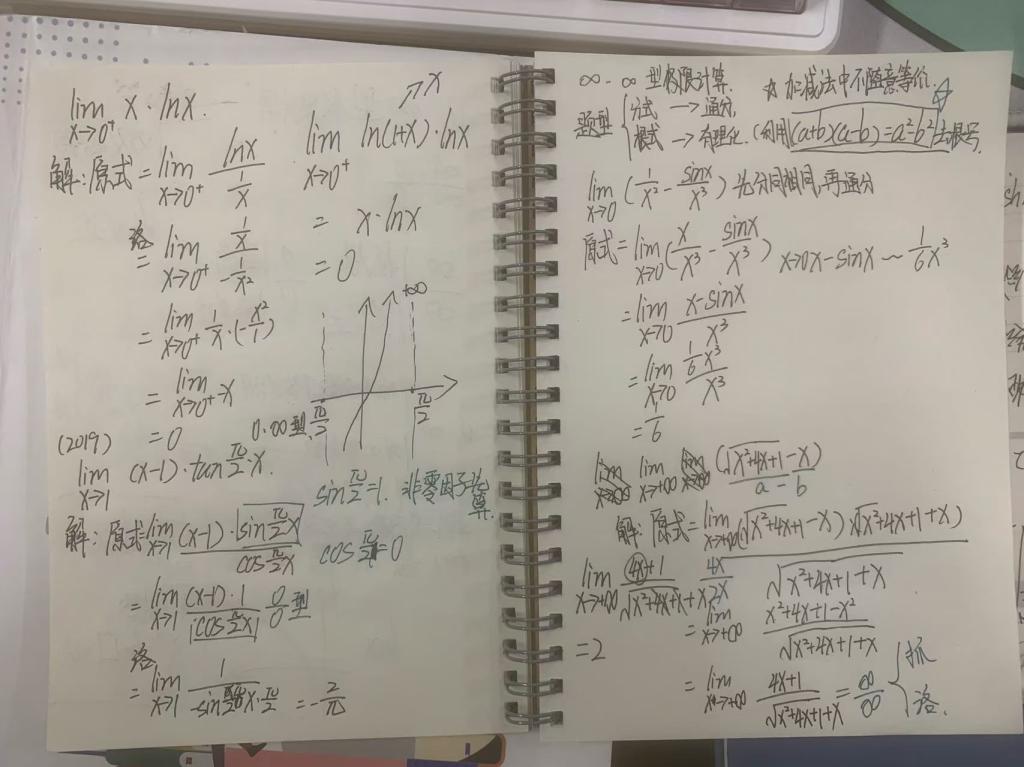 lim x→0⁺ x·lnx.
解:原式=lim x→0⁺ lnx / (1/x)
洛 = lim x→0⁺ (1/x) / (-1/x²)
= lim x→0⁺ 1/x·(-x²/1)
= lim x→0⁺ -x
= 0
↗x
lim x→0⁺ ln(1+x)·lnx
= x·lnx
= 0
+∞
π/2
0·∞型.
(2019)
lim x→1 (x-1)·tan π/2·x.
sin π/2=1. 非零因子先算.
解:原式 lim x→1 (x-1)·sin π/2 x / cos π/2 x
cos π/2=0
= lim x→1 (x-1)·1 / cos π/2 x 0/0 型
洛 = lim x→1 1 / -sin π/2 x·π/2 = -2/π
∞-∞ 型极限计算. ☆ 加减法中不随意等价.
题型 { 分式 → 通分,
根式 → 有理化. (利用(a+b)(a-b)=a²-b²去根号.
lim x→0 (1/x² - sinx/x³) 先分同相同,再通分
原式=lim x→0 (x/x³ - sinx/x³) x→0 x-sinx ~ 1/6 x³
= lim x→0 x-sinx / x³
= lim x→0 1/6 x³ / x³
= 1/6
lim x→+∞ (√x²+4x+1 -x)
a - b
解:原式=lim x→+∞ (√x²+4x+1 -x)(√x²+4x+1+x)
√x²+4x+1+x
lim x→+∞ 4x+1 / √x²+4x+1+x 4x/2x
= lim x→+∞ x²+4x+1-x² / √x²+4x+1+x
=2
= lim x→+∞ 4x+1 / √x²+4x+1+x = ∞/∞ { 抓
洛.